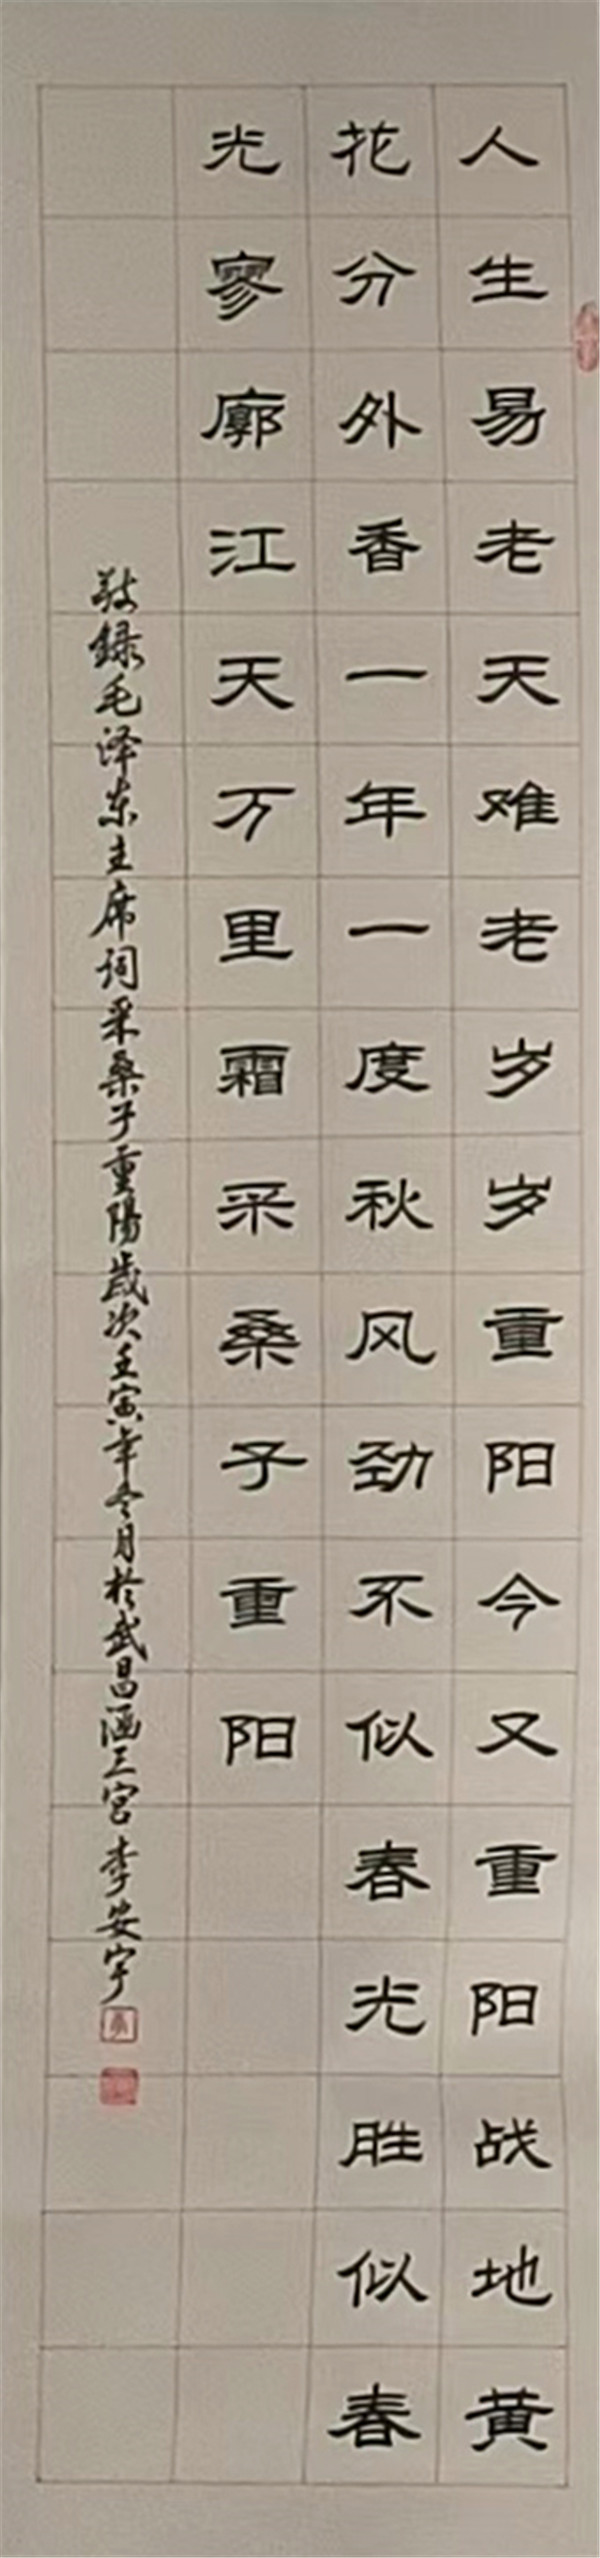 人生易老天难老岁岁重阳今又重阳战地黄
花分外香一年一度秋风劲不似春光胜似春
光寥廓江天万里霜采桑子重阳
敬録毛泽东主席词采桑子重陽歲次壬寅年冬月於武昌涵三宫李安宇